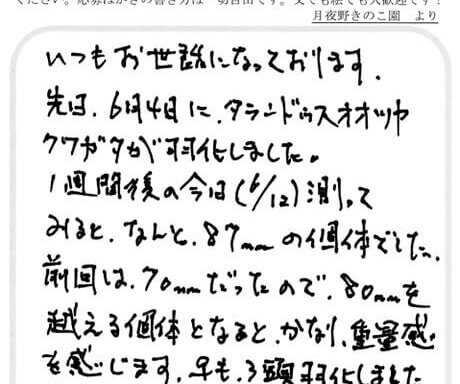 ください。応募はがきの書き方は一切自由です。文でも絵でも大歓迎です！
月夜野きのこ園　より
いつもお世話になっております。
先日、6月4日に、タランドゥスオオツヤ
クワガタが羽化しました。
1週間後の今日(6/12)測って
みると、なんと、87mmの個体でした。
前回は、70mmだったので、80mmを
越える個体となると、かなり、重量感
を感じます。♀も、3頭羽化しました